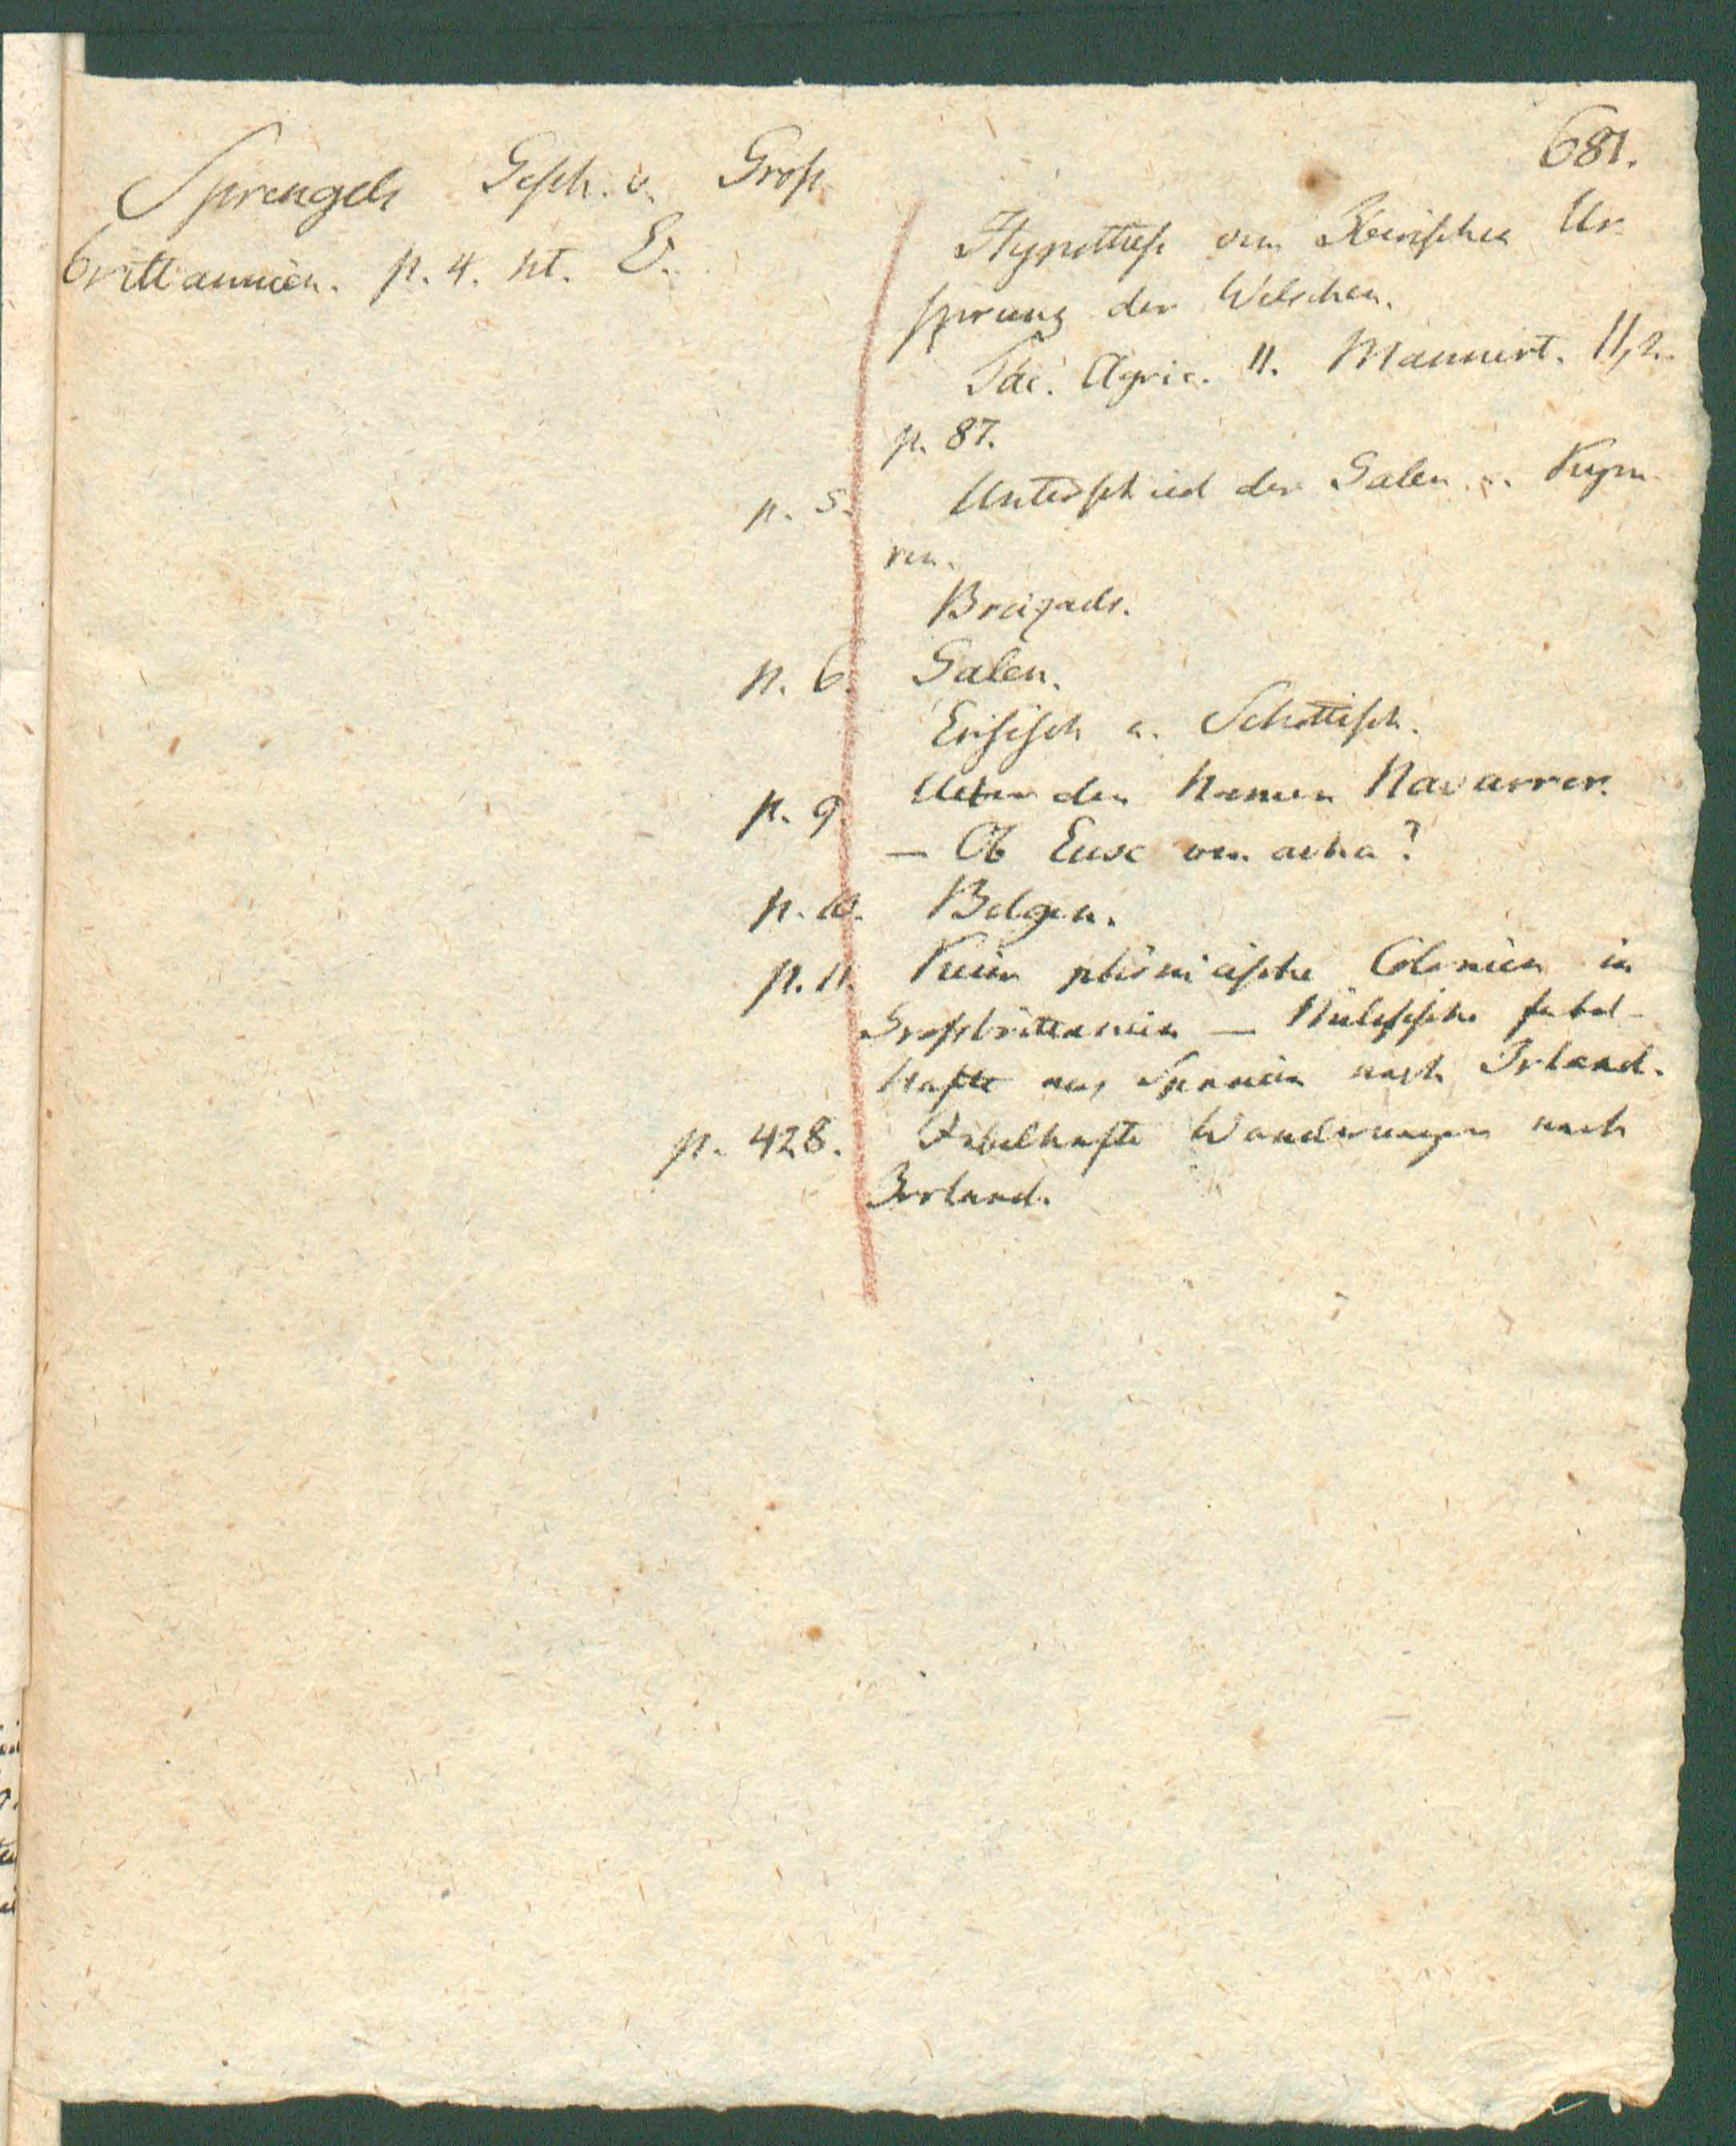 681.
Sprengels Gesch. v. Groß
brittannien. p. 4. nt. E.
Hypothese vom Iberischen Ur
sprung der Welschen.
Tac. Agric. 11. Mannert. II, 2.
p. 87.
p. 5. Unterschied der Galen u. Kym
ren.
Breizads.
p. 6. Galen.
Ersisch u. Schottisch.
p. 9. Ueber den Namen Navarrer.
— Ob Eusc von
p. 10. Belgen.
p. 11. Keine phönicische Colonien in
Großbrittannien — fabel-
hafte aus Spanien nach Irland.
p. 428. Fabelhafte Wanderungen nach
Irland.